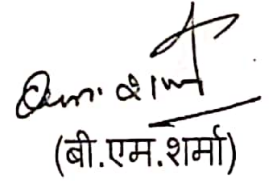 (बी.एम.शर्मा)